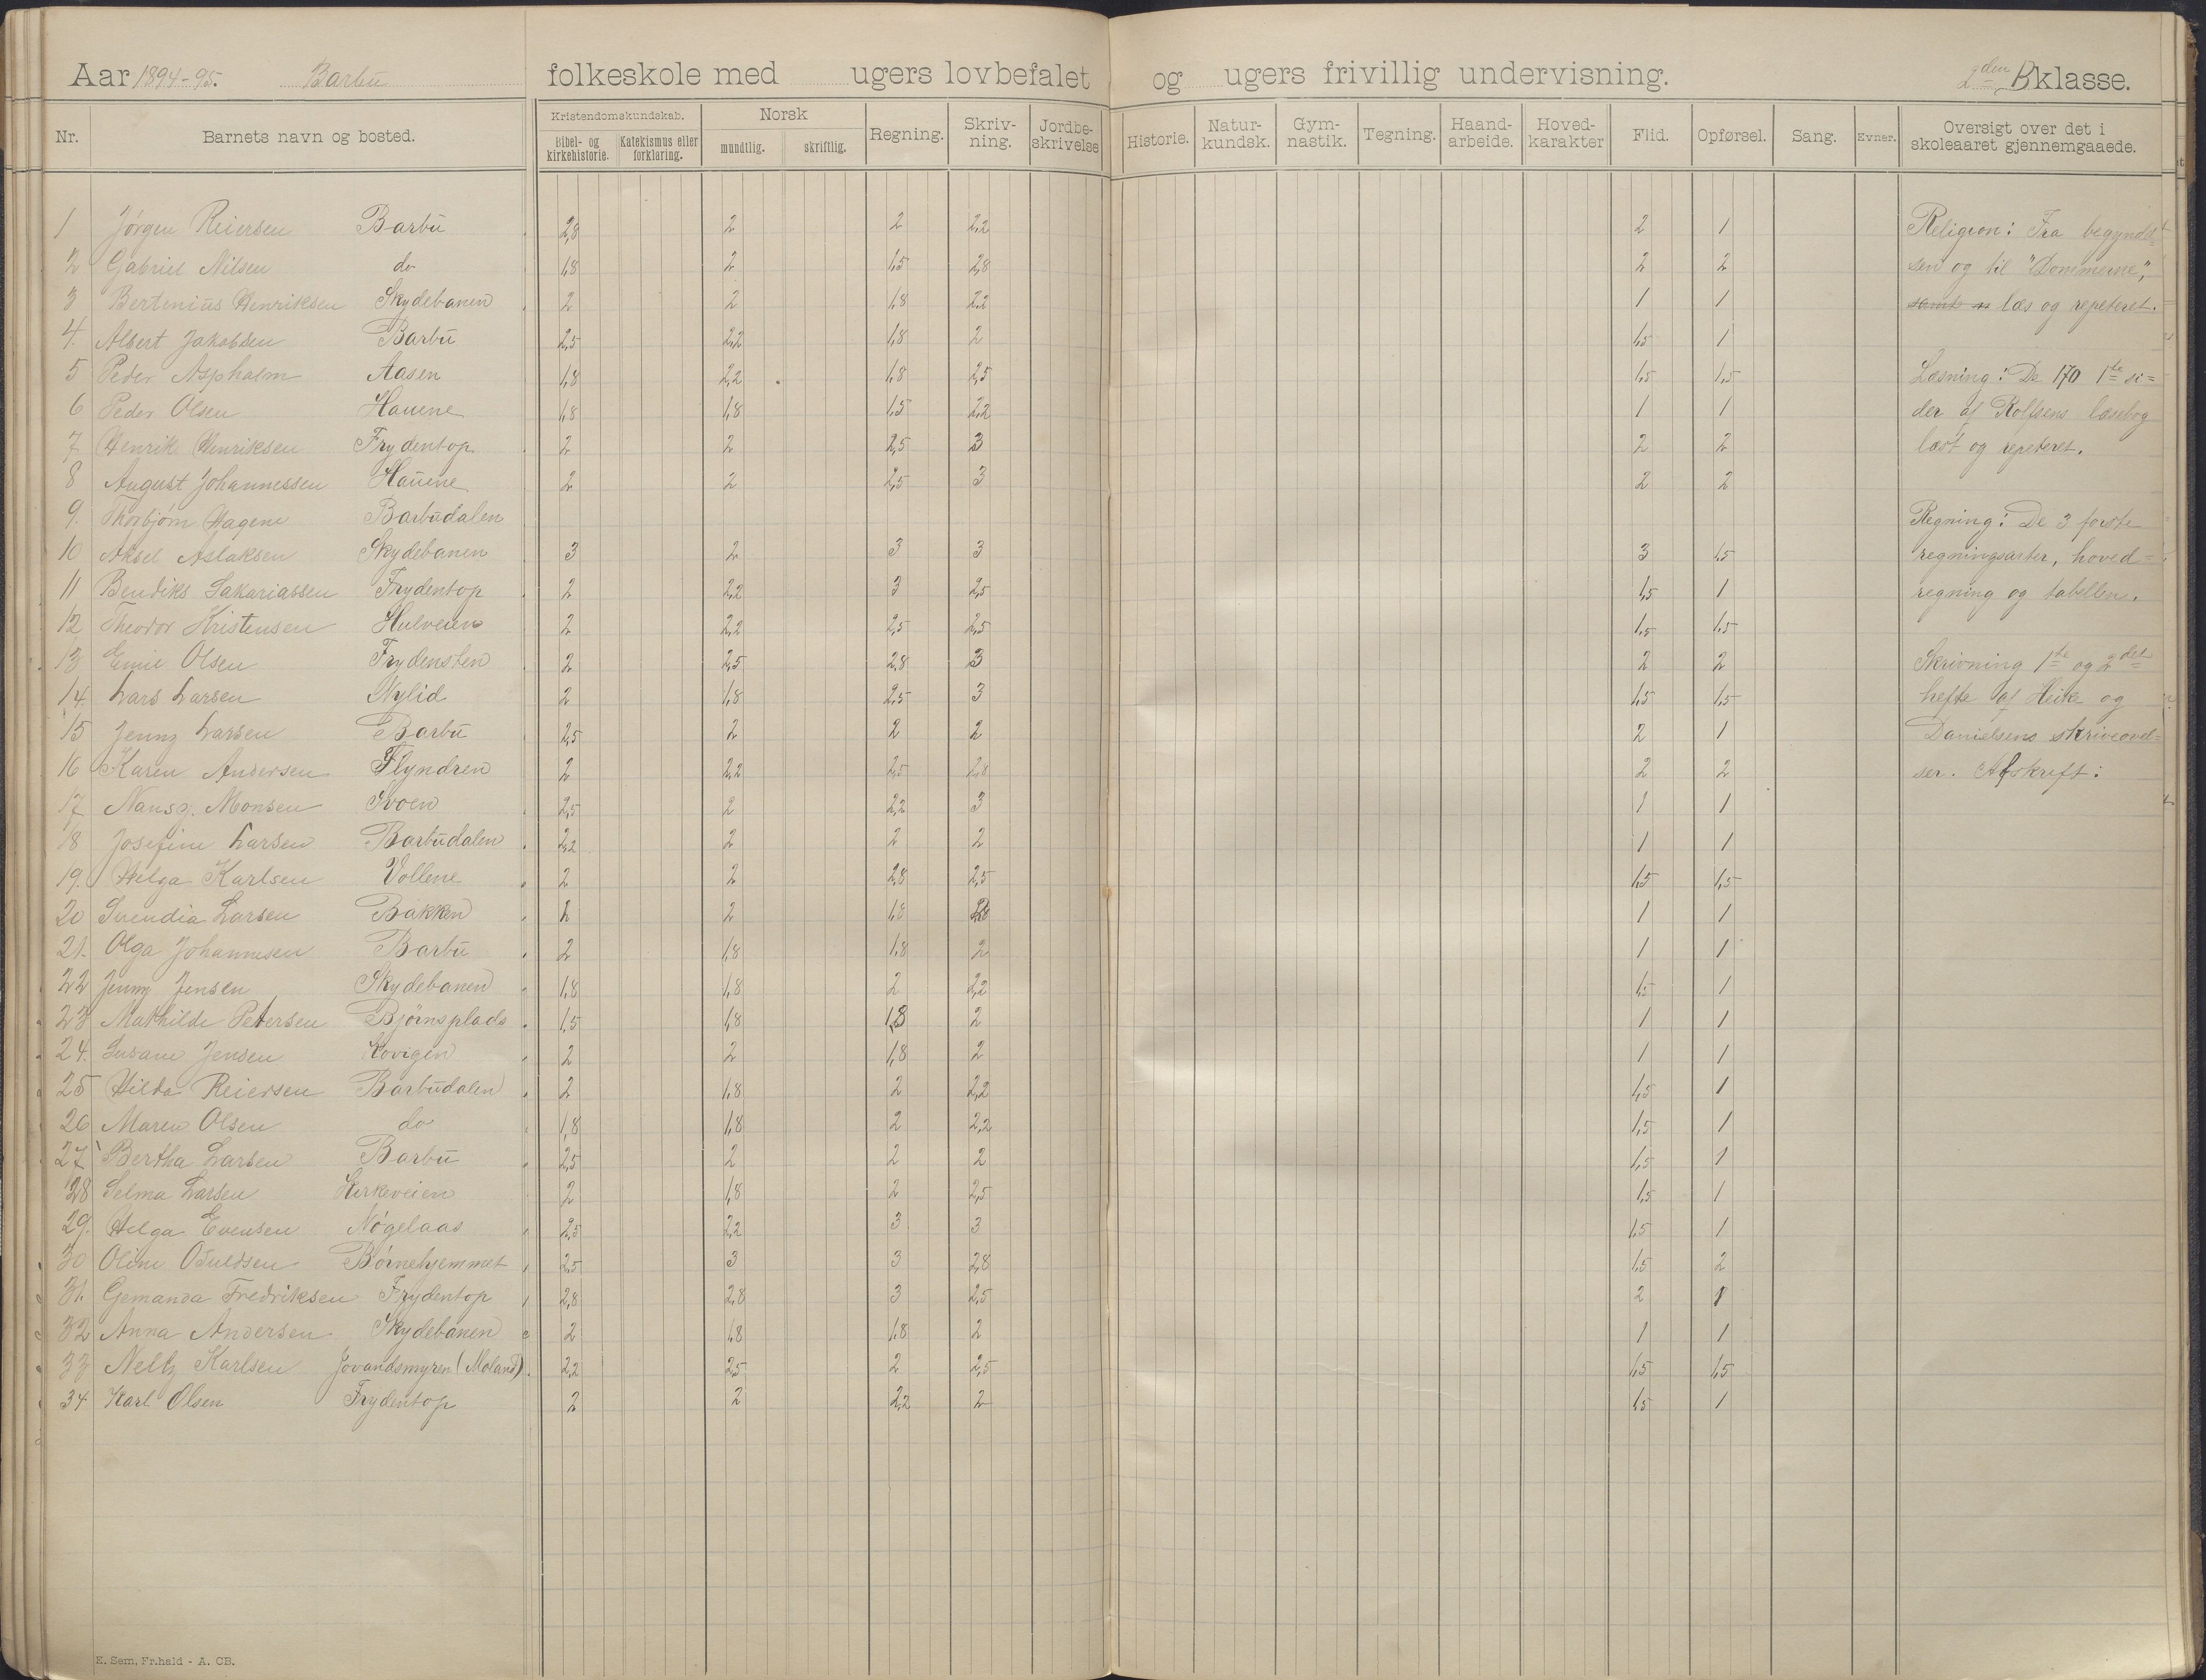 Aar 1894-95. Barbu folkeskole med ugers lovbefalet og ugers frivillig undervisning. 2den B klasse.
Nr. Barnets navn og bosted. Kristendomskundskab. Bibel- og kirkehistorie. Katekismus eller forklaring. Norsk mundtlig. skriftlig. Regning. Skriv-ning. Jordbe-skrivelse Historie. Natur-kundsk. Gym-nastik. Tegning. Haand-arbeide. Hoved-karakter Flid. Opførsel. Sang. Evner. Oversigt over det i skoleaaret gjennemgaaede.
1 Jørgen Reiersen Barbu 2,8 2 2 2,2 2 1 Religion: Fra begyndel-
2 Gabriel Nilsen do 1,8 2 1,5 2,8 2 2 sen og til "Dommerne",
3 Bertenius Henriksen Skydebanen 2 2 1,8 2,2 1 1 samt læs og repeteret.
4. Albert Jakobsen Barbu 2,5 2,2 1,8 2 1,5 1
5 Peder Aspholm Aasen 1,8 2,2 1,8 2,5 1,5 1,5 Læsning: De 170 1ste si=
6 Peder Olsen Hauene 1,8 1,8 1,5 2,2 1 1 der af Rolfsens læsebog
7 Henrik Henriksen Frydentop 2 2 2,5 3 2 2 læst og repeteret.
8 August Johannessen Hauene 2 2 2,5 3 2 2
9. Thorbjørn Hagene Barbudalen Regning: De 3 første
10 Aksel Aslaksen Skydebanen 3 2 3 3 3 1,5 regningsarter, hoved=
11 Bendiks Sakariassen Frydentop 2 2,2 3 2,5 1,5 1 regning og tabellen.
12 Theodor Kristensen Hulveien 2 2,2 2,5 2,5 1,5 1,5
13 Emil Olsen Frydensten 2 2,5 2,8 3 2 2 Skrivning 1ste og 2det
14. Lars Larsen Nylid 2 1,8 2,5 3 1,5 1,5 hefte af og
15 Jenny Larsen Barbu 2,5 2 2 2 2 1 Danielsens skriveøvel=
16 Karen Andersen Flyndren 2 2,2 2,5 2,8 2 2 ser. Afskrift:
17 Nansy. Monsen 2,5 2 2,2 3 1 1
18 Josefine Larsen Barbudalen 2,2 2 2 2 1 1
19. Helga Karlsen Vollene 2 2 2,8 2,5 1,5 1,5
20 Svendia Larsen Bakken 2 2 1,8 1 1
21. Olga Johannesen Barbu 2 1,8 1,8 2 1 1
22 Jenny Jensen Skydebanen 1,8 1,8 2 2,2 1,5 1
23 Mathilde Petersen Bjørnsplads 1,5 1,8 1,8 2 1 1
24. Susane Jensen 2 2 1,8 2 1 1
25 Hilda Reiersen Barbudalen 2 1,8 2 2,2 1,5 1
26 Maren Olsen do 1,8 1,8 2 2,2 1,5 1
27 Bertha Larsen Barbu 2,5 2 2 2 1,5 1
28 Selma Larsen Kirkeveien 2 1,8 2 2,5 1,5 1
29. Helga Evensen Nøgelaas 2,5 2,2 3 3 1,5 1
30 Oline Osuldsen Børnehjemmet 2,5 3 3 2,8 1,5 2
31. Gemanda Fredriksen Frydentop 2,8 2,8 3 2,5 2 1
32 Anna Andersen Skydebanen 2 1,8 1,8 2 1 1
33 Nelly Karlsen Jovandsmyren (Moland) 2,2 2,5 2 2,5 1,5 1,5
34 Karl Olsen Frydentop 2 2 2,2 2 1,5 1
E. Sem, Fr.hald - A. CB.